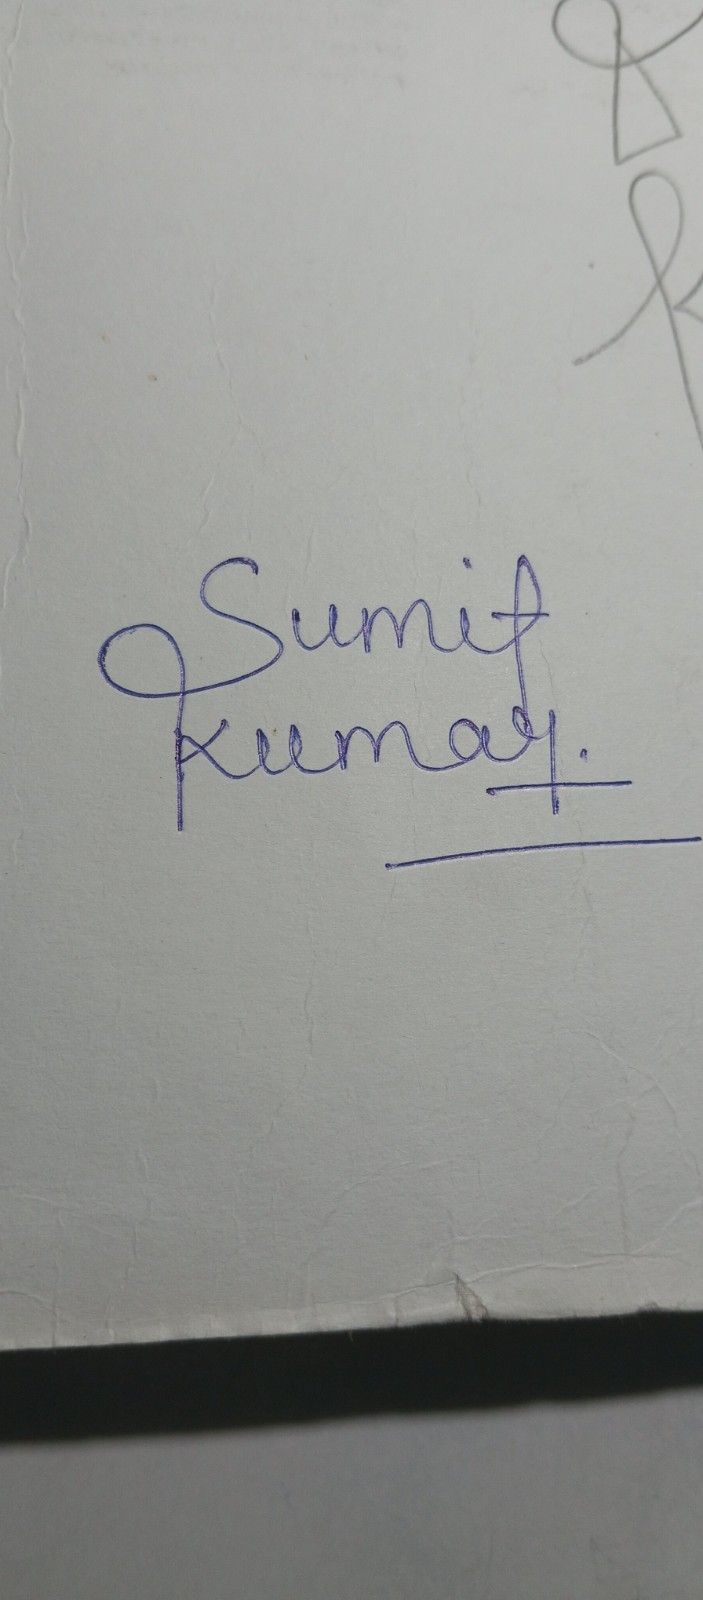 Sumit
Kumar.